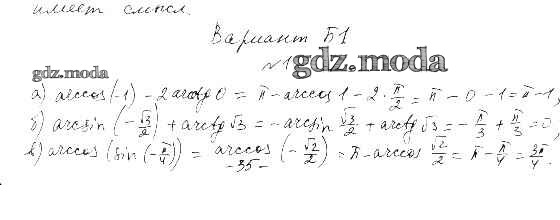 имеет смысл.
Вариант Б1
№1 gdz.moda
gdz.moda
а) arccos(-1) - 2 arcctg 0 = π - arccos 1 - 2 · π/2 = π - 0 - 1 = π - 1,
б) arcsin (-√3/2) + arctg √3 = - arcsin √3/2 + arctg √3 = - π/3 + π/3 = 0,
в) arccos (sin (-π/4)) = arccos (-√2/2) = π - arccos √2/2 = π - π/4 = 3π/4.
-35-